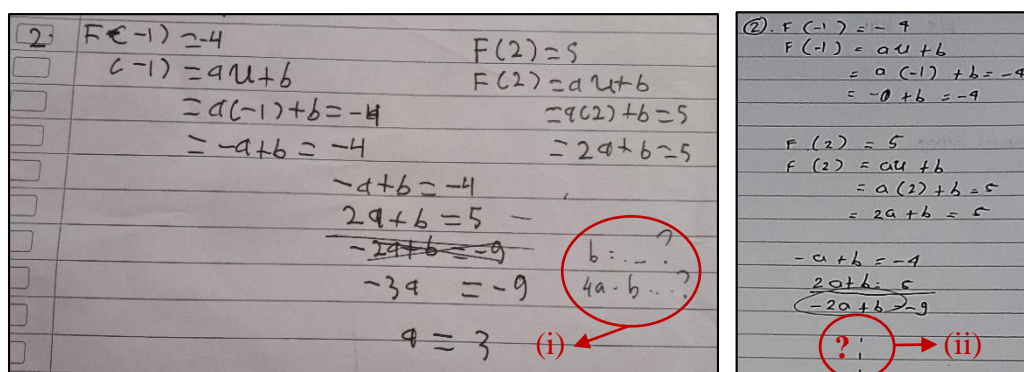 2 F(-1) = -4
(-1) = ax+b
= a(-1)+b = -4
= -a+b = -4
F(2) = 5
F(2) = ax+b
= a(2)+b = 5
= 2a+b = 5
-a+b = -4
2a+b = 5 -
-2a+b = -9
-3a = -9
a = 3
b = ... ?
4a - b ... ?
(i)
②. F(-1) = -4
F(-1) = ax + b
= a(-1) + b = -4
= -a + b = -4
F(2) = 5
F(2) = ax + b
= a(2) + b = 5
= 2a + b = 5
-a + b = -4
2a + b = 5
-2a + b = -9
?
(ii)